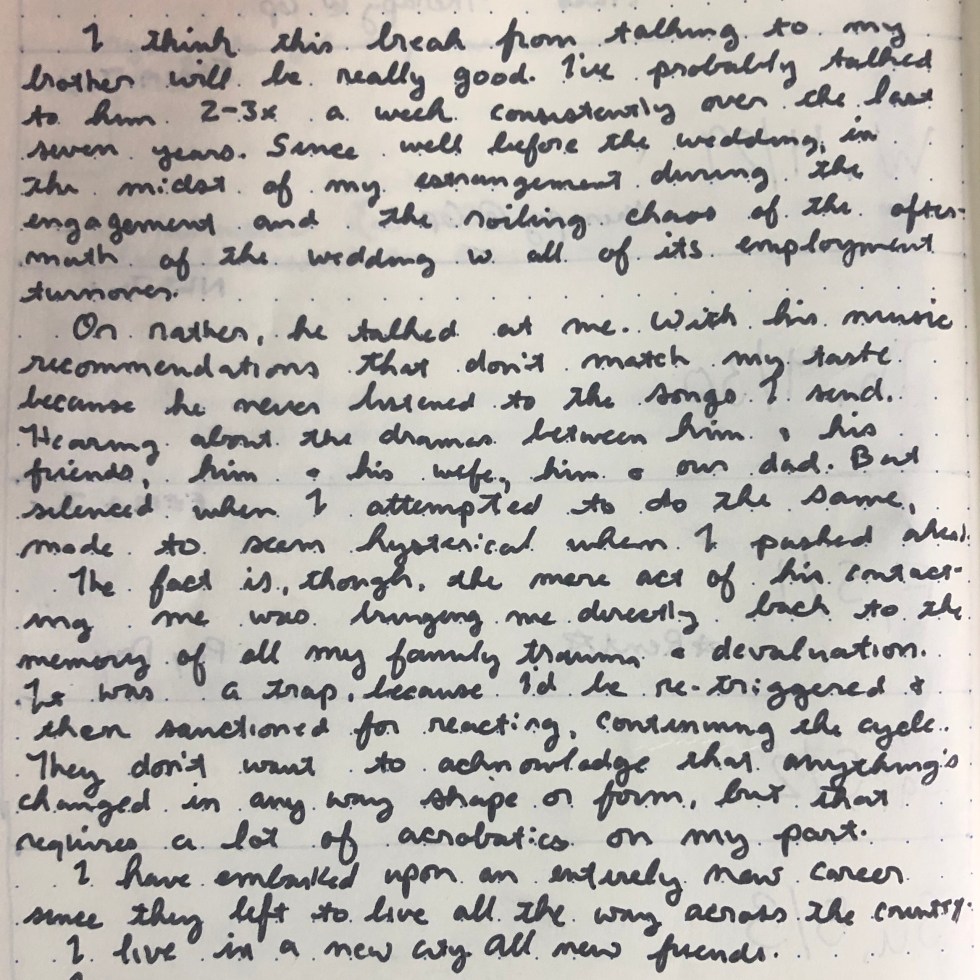 I think this break from talking to my
brother will be really good. I've probably talked
to him 2-3x a week consistently over the last
seven years. Since well before the wedding, in
the midst of my estrangement during the
engagement and the roiling chaos of the after-
math of the wedding w all of its employment
turnover.
Or rather, he talked at me. With his music
recommendations that don't match my taste
because he never listened to the songs I send.
Hearing about the dramas between him & his
friends, him & his wife, him & our dad. But
silenced when I attempted to do the same,
made to seem hysterical when I pushed
The fact is, though, the mere act of his contact-
ing me was bringing me directly back to the
memory of all my family trauma & devaluation.
It was a trap, because I'd be re-triggered &
then sanctioned for reacting, continuing the cycle.
They don't want to acknowledge that anything's
changed in any way shape or form, but that
requires a lot of acrobatics on my part.
I have embarked upon an entirely new career
since they left to live all the way across the country.
I live in a new city. All new friends.